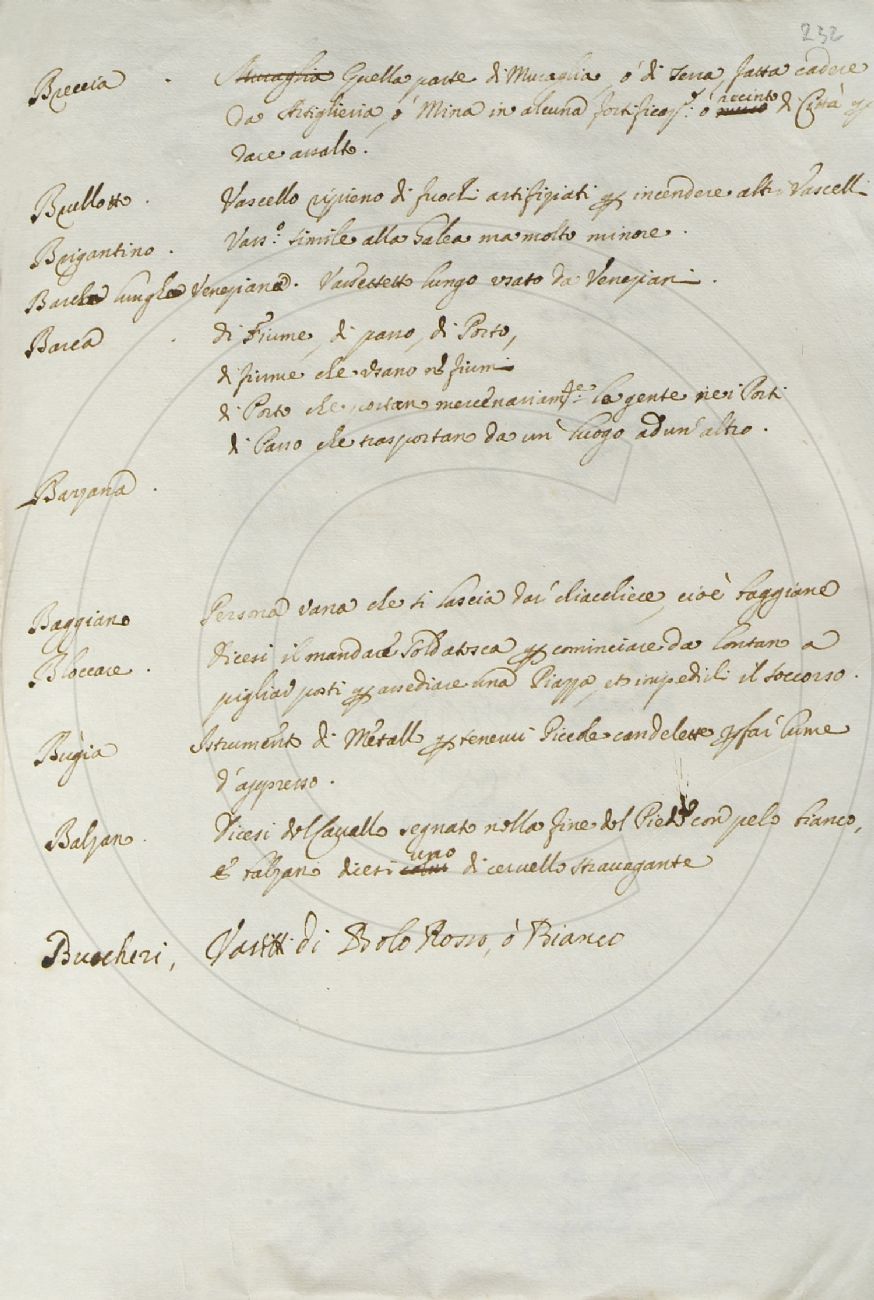 232
Breccia . Muraglia Quella parte di Muraglia, ó di Terra fatta cadere
da Artiglieria, ó Mina in alcuna fortificaz.e ó muro recinto di Città per
dare assalto.
Brullotto . Vascello ripieno di fuochi artifiziati per incendere altri Vascelli
Brigantino . Vass.o simile alla Galea ma molto minore .
Barca lunga Veneziana . Vascelletto lungo usato da Veneziani .
Barca . di Fiume, di passo, di Porto,
di fiume che usano ne fiumi
di Porto che portan mercenariam.te la gente nei Porti
di Passo che trasportan da un' luogo ad un' altro .
Barzana .
Baggiano Persona vana che si lascia dar' chiacchiere, cioè baggiane
Bloccare . dicesi il mandare Soldatesca per cominciare da lontan a
pigliar posti per assediare una Piazza, et impedirli il soccorso .
Bugia Istrumento di Metallo per tenervi Piccole candelette per far' lume
d'appresso .
Balzan . Dicesi del Cavallo segnato nella fine del Piede con pelo bianco,
e balzan dicesi uno di cervello stravagante
Buccheri, Vasetti di Bolo Rosso, ò Bianco